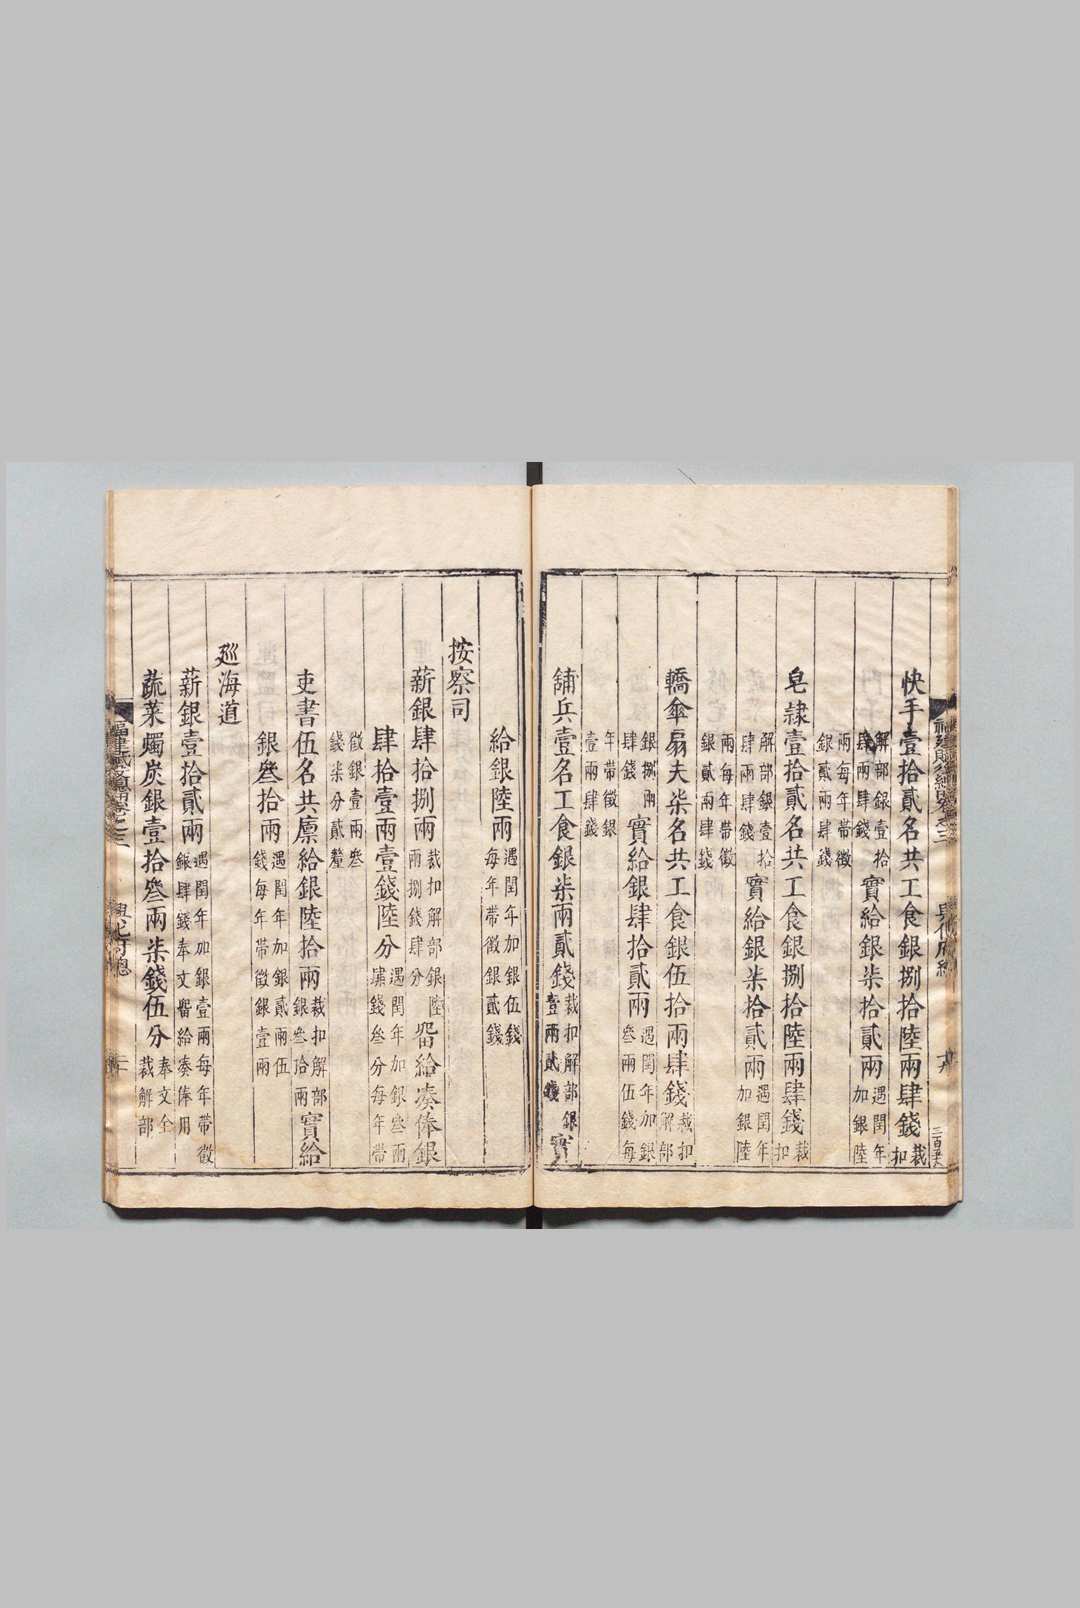 快手壹拾貳名共工食銀捌拾陸兩肆錢裁扣
解部銀壹拾肆兩肆錢實給銀柒拾貳兩遇閏年加銀陸
兩每年帶徵銀貳兩肆錢
皂隷壹拾貳名共工食銀捌拾陸兩肆錢裁扣
解部銀壹拾肆兩肆錢實給銀柒拾貳兩遇閏年加銀陸
兩每年帶徵銀貳兩肆錢
轎傘扇夫柒名共工食銀伍拾兩肆錢裁扣解部
銀捌兩肆錢實給銀肆拾貳兩遇閏年加銀叁兩伍錢每
年帶徵銀壹兩肆錢
舖兵壹名工食銀柒兩貳錢裁扣解部銀壹兩貳錢實
給銀陸兩遇閏年加銀伍錢每年帶徵銀貳錢
按察司
薪銀肆拾捌兩裁扣解部銀陸兩捌錢肆分畱給凑俸銀
肆拾壹兩壹錢陸分遇閏年加銀叁兩肆錢叁分每年帶
徵銀壹兩叁錢柒分貳釐
吏書伍名共廪給銀陸拾兩裁扣解部銀叁拾兩實給
銀叁拾兩遇閏年加銀貳兩伍錢每年帶徵銀壹兩
廵海道
薪銀壹拾貳兩遇閏年加銀壹兩每年帶徵銀肆錢奉文畱給凑俸用
蔬菜燭炭銀壹拾叁兩柒錢伍分奉文全裁解部